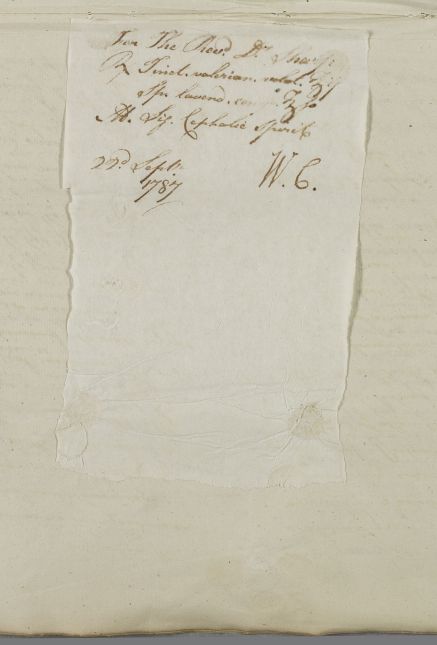 For The Revd. Dr. Sharp
℞ Tinct. valerian. volat. ℥ij
Sp. lavend. comp. ℥ss
M. Sig. Cephalic Spirit
22d. Septr.
1787
W. C.